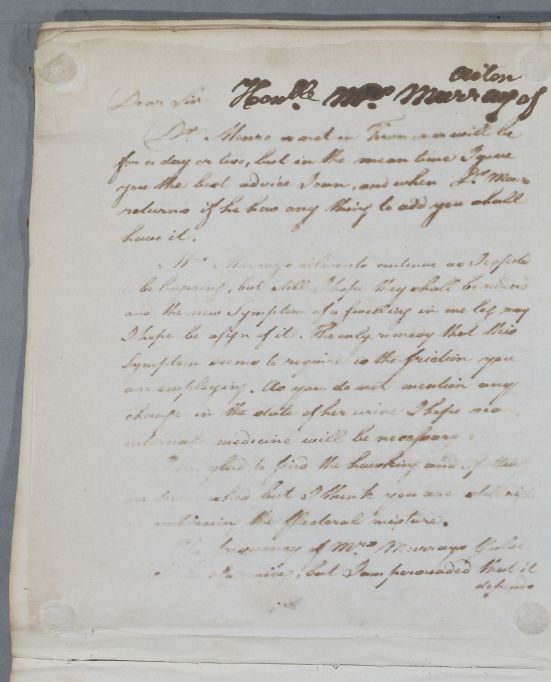 Aiton
Dear Sir Honble Mrs Murray of
Dr. Monro is not in Town nor will be
for a day or two, but in the mean time I give
you the best advice I can, and when Dr Monro
returns if he has any thing to add you shall
have it.
Mrs Murrays ailments continue as I
be lingering, but still I hope they shall be
and the new Symptom of a swelling in one leg may
I hope be a sign of it. The only remedy that this
Symptom seems to require is the friction you
are employing. As you do not mention any
change in the state of her urine I hope no
internal medicine will be necessary
I am glad to find the hawking and spitting
but I think you are still right
in the Pectoral mixture.
The frequency of Mrs Murrays Pulse
but I am persuaded that it
depends